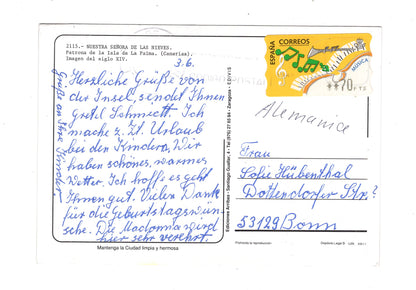 2115.- NUESTRA SEÑORA DE LAS NIEVES.
Patrona de la Isla de La Palma. (Canarias).
Imagen del siglo XIV.
3.6.
Herzliche Grüße von
der Insel, sendet Ihnen
Gretel Schmidt. Ich
mache z. Zt. Urlaub
bei den Kindern, Wir
haben schönes, warmes
Wetter. Ich hoffe es geht
Ihnen gut. Vielen Dank
für die Geburtstagswün-
sche. Die Madonna wird
hier sehr verehrt.
Grüße an Ihre Kinder
Mantenga la Ciudad limpia y hermosa
ESPAÑA
CORREOS
MÚSICA
**70 PTS
Alemania
Frau
Sofie Hübenthal
Dottendorfer Str.
53129 Bonn
Prohibida la reproducción